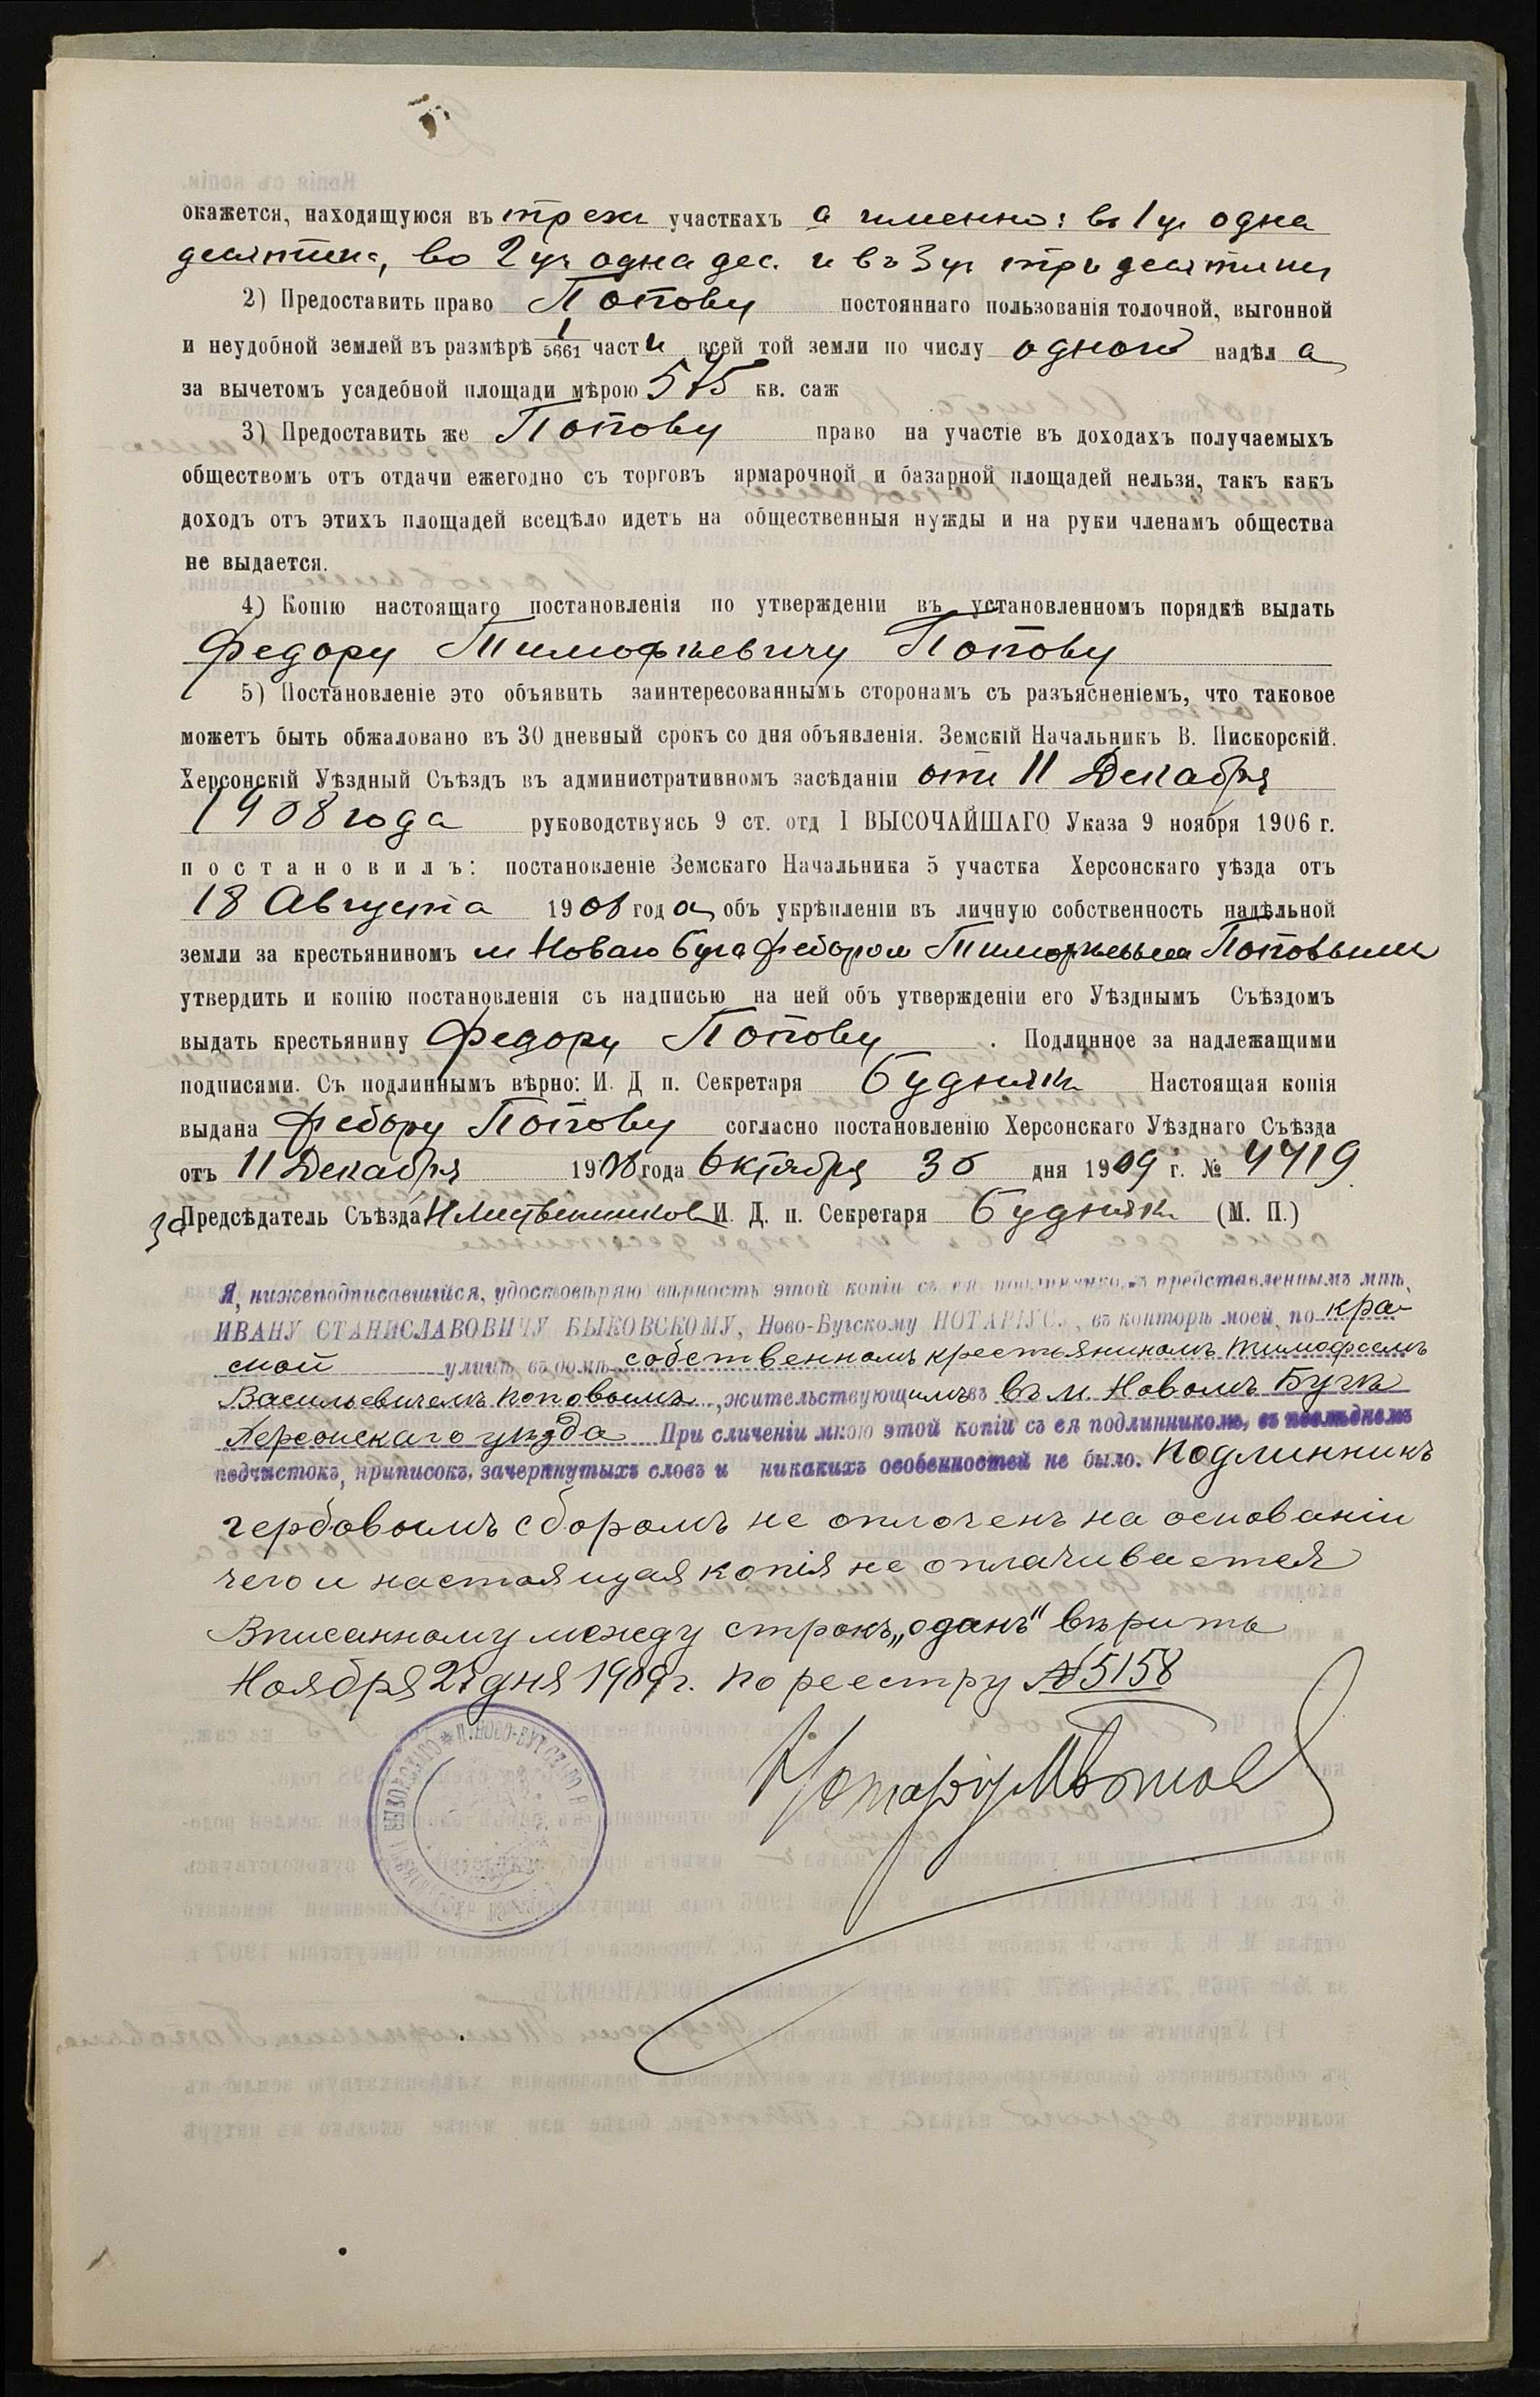 окажется, находящуюся въ трехъ участкахъ а именно: въ 1 уч одна
десятина, во 2 уч одна дес. и въ 3 уч три десятины
2) Предоставить право Попову постояннаго пользованія толочной, выгонной
и неудобной землей въ размѣрѣ 1/5661 части всей той земли по числу одного надѣла
за вычетомъ усадебной площади мѣрою 575 кв. саж
3) Предоставить же Попову право на участіе въ доходахъ получаемыхъ
обществомъ отъ отдачи ежегодно съ торговъ ярмарочной и базарной площадей нельзя, такъ какъ
доходъ отъ этихъ площадей всецѣло идетъ на общественныя нужды и на руки членамъ общества
не выдается.
4) Копію настоящаго постановленія по утвержденіи въ установленномъ порядкѣ выдать
Федору Тимофѣевичу Попову
5) Постановленіе это объявить заинтересованнымъ сторонамъ съ разъясненіемъ, что таковое
можетъ быть обжаловано въ 30 дневный срокъ со дня объявленія. Земскій Начальникъ В. Пискорскій.
Херсонскій Уѣздный Съѣздъ въ административномъ засѣданіи отъ 11 Декабря
1908 года руководствуясь 9 ст. отд I ВЫСОЧАЙШАГО Указа 9 ноября 1906 г.
постановилъ: постановленіе Земскаго Начальника 5 участка Херсонскаго уѣзда отъ
18 Августа 1908 года объ укрѣпленіи въ личную собственность надѣльной
земли за крестьяниномъ м Новаго Буга Федоромъ Тимофѣевымъ Поповымъ
утвердить и копію постановленія съ надписью на ней объ утвержденіи его Уѣзднымъ Съѣздомъ
выдать крестьянину Федору Попову . Подлинное за надлежащими
подписями. Съ подлиннымъ вѣрно: И. Д п. Секретаря Будникъ Настоящая копія
выдана Федору Попову согласно постановленію Херсонскаго Уѣзднаго Съѣзда
отъ 11 Декабря 1908 года Октября 30 дня 1909 г. № 4419
За Предсѣдатель Съѣзда И. Д. п. Секретаря Будникъ (М. П.)
Я, нижеподписавшійся, удостовѣряю вѣрность этой копіи съ ея подлинникомъ представленнымъ мнѣ,
ИВАНУ СТАНИСЛАВОВИЧУ БЫКОВСКОМУ, Ново-Бугскому НОТАРІУСУ, въ конторѣ моей, по кра-
сной улицѣ въ домѣ собственномъ крестьяниномъ Тимофеемъ
Васильевичемъ Поповымъ, жительствующимъ въ въ м. Новомъ Бугѣ
Херсонскаго уѣзда При сличеніи мною этой копіи съ ея подлинникомъ, въ последнемъ
подчистокъ, приписокъ, зачеркнутыхъ словъ и никакихъ особенностей не было. Подлинникъ
гербовымъ сборомъ не оплоченъ на основаніи
чего и настоящая копія не оплачивается
Вписанному между строкъ „оданъ" вѣрить
Ноября 27 дня 1909 г. По реестру №5158
Нотаріус